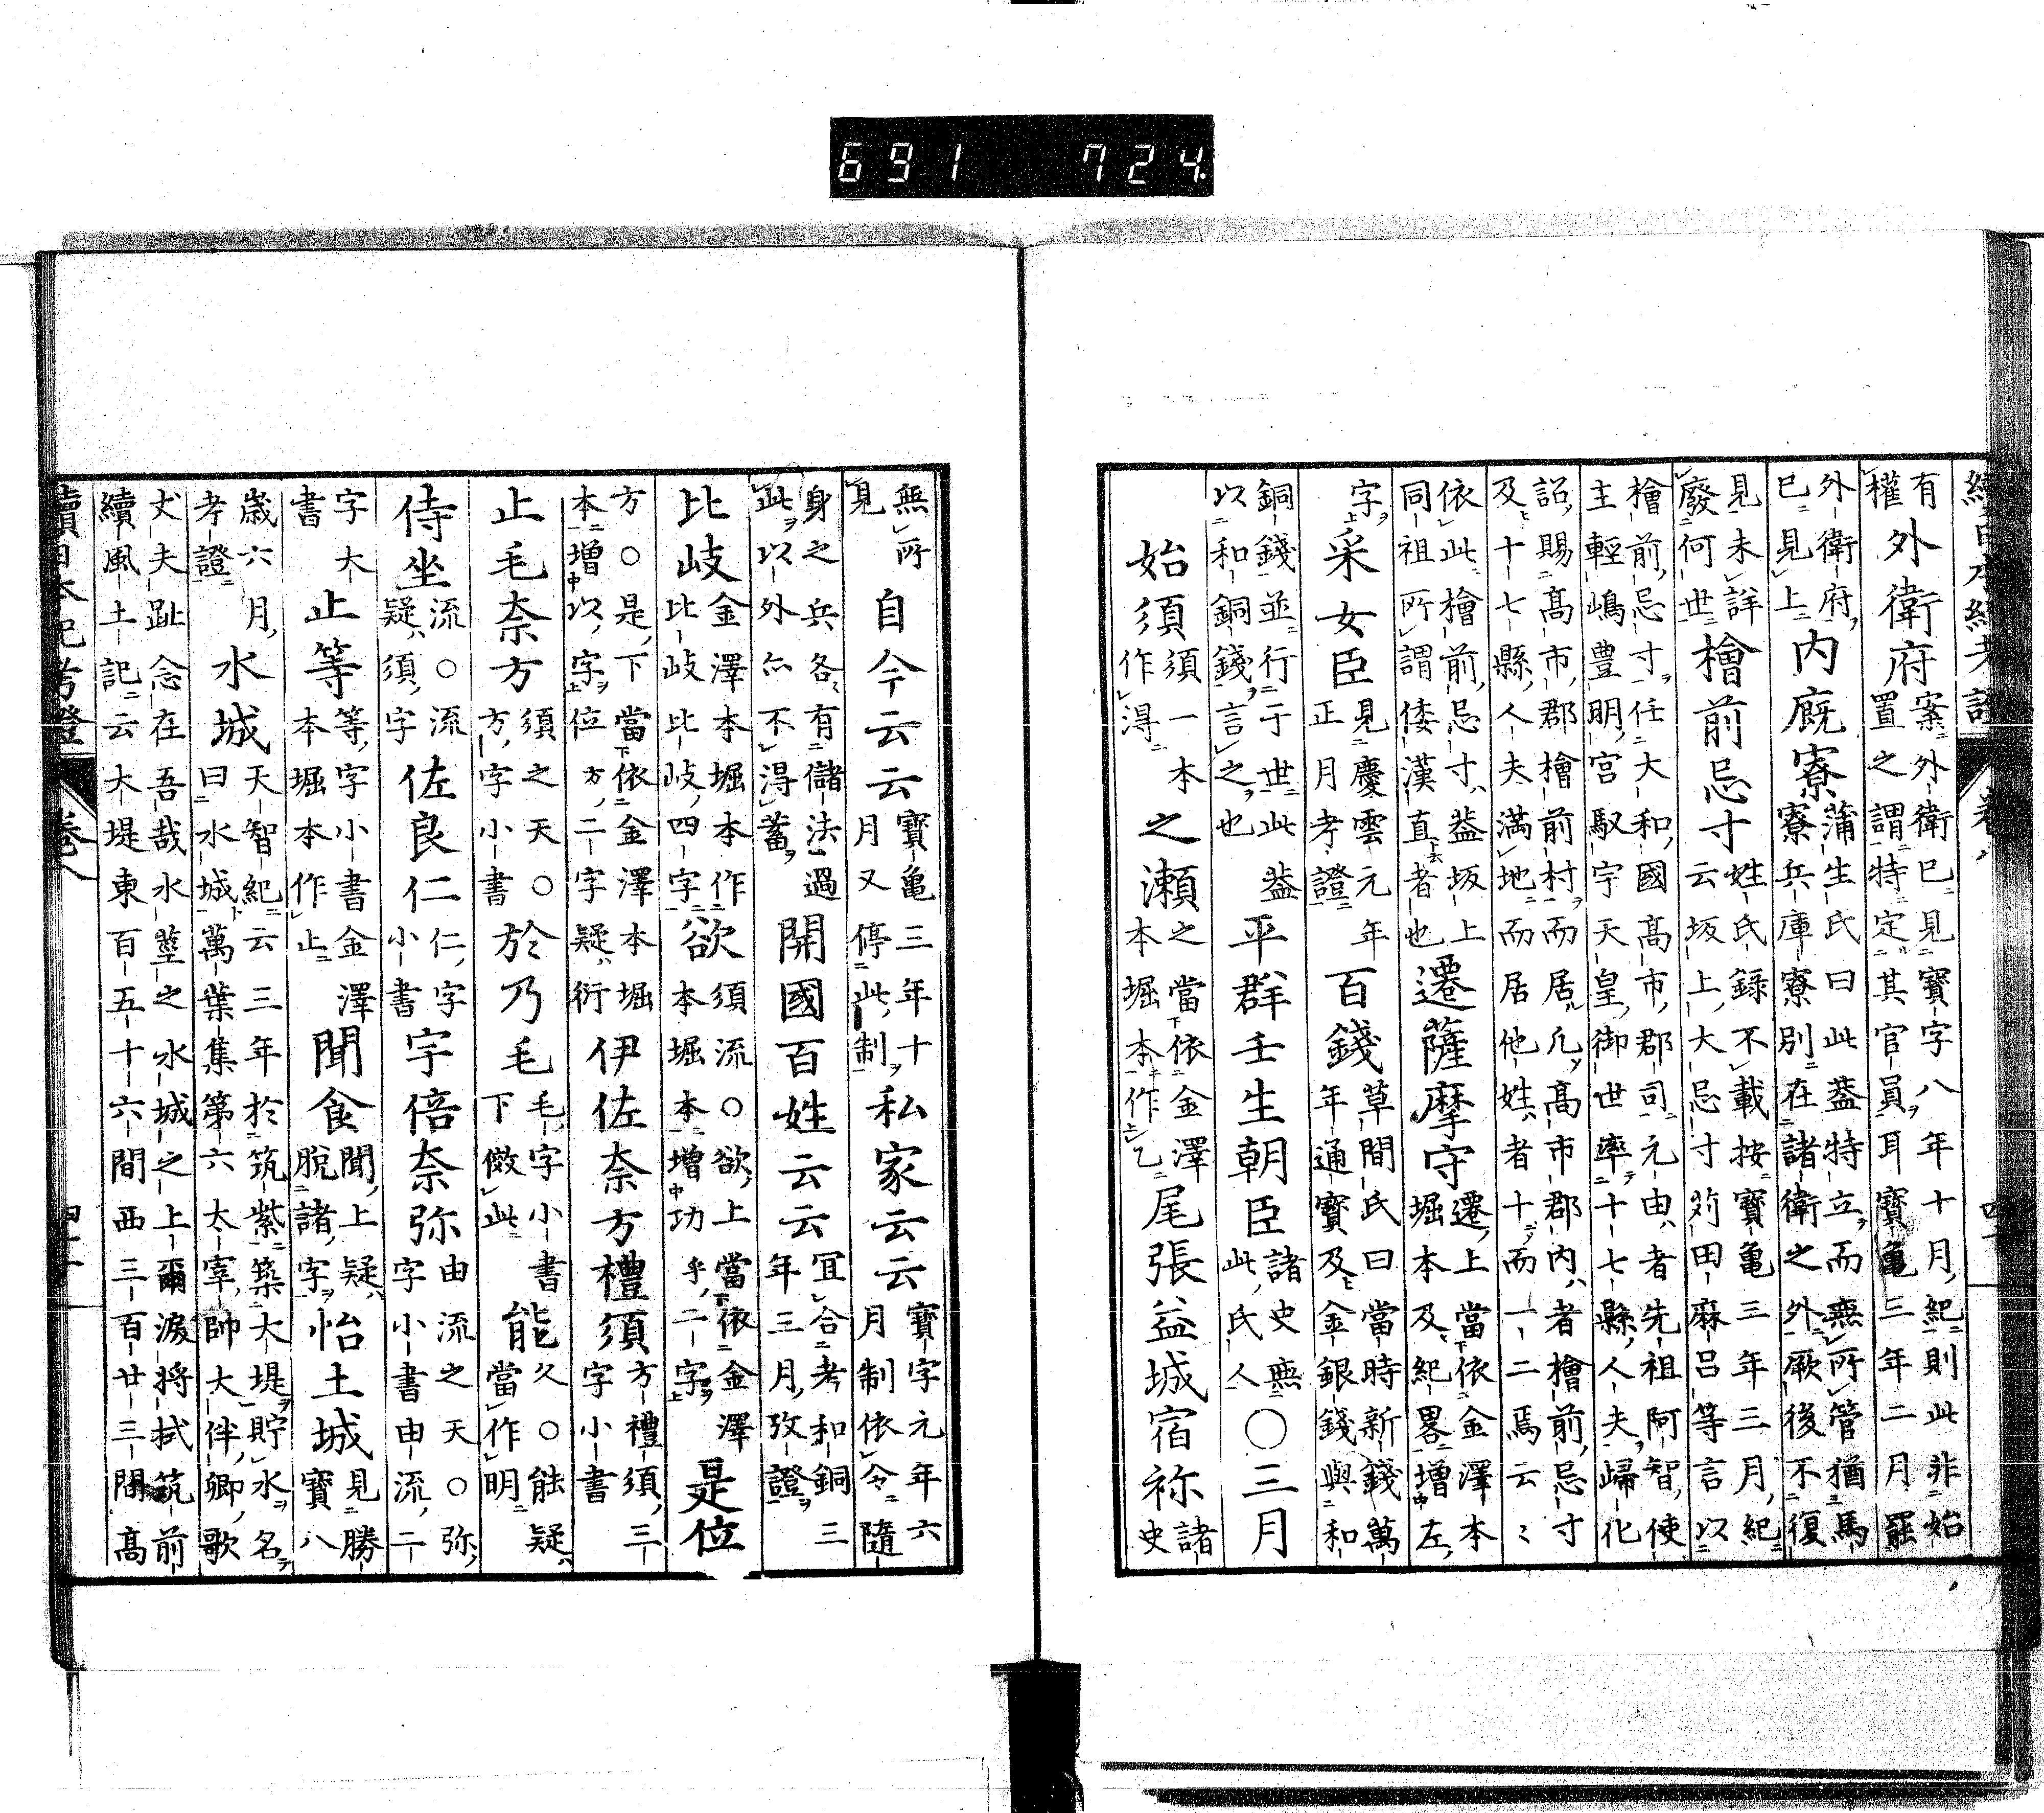 691 724.
有權外衛府案外衛巳見寶字八年十月紀則此非始置之謂特定其官員耳寶亀三年二月罷
外衛府巳見上内廐寮蒲生氏曰此葢特立而無所管猶馬寮兵庫寮別在諸衛之外厥後不復
見未詳廢何世檜前忌寸姓氏録不載按寶亀三年三月紀云坂上大忌寸苅田麻呂等言以
檜前忌寸任大和國高市郡司元由者先祖阿智使主輕嶋豊明宮馭宇天皇御世率十七縣人夫歸化
詔賜高市郡檜前村而居凡高市郡内者檜前忌寸及十七縣人夫滿地而居他姓者十而一二焉云〻
依此檜前忌寸葢坂上同祖所謂倭漢直者也遷薩摩守遷上當依金澤本堀本及紀畧増左
字采女臣見慶雲元年正月考證百錢草間氏曰當時新錢萬年通寶及金銀錢與和
銅錢並行于世此葢以和銅錢言之也平群壬生朝臣諸史無此氏人〇三月
始須須一本作淂之瀬之當依金澤本堀本作乙尾張益城宿祢諸史
無所見自今云云寶亀三年十月又停此制私家云云寶字元年六月制依令隨
身之兵各有儲法過此以外亦不得蓄開國百姓云云冝合考和銅三年三月攷證
比岐金澤本堀本作比岐比岐四字欲須流〇欲上當依金澤本堀本増功乎二字是位
方〇是下當依金澤本堀本増以字位方二字疑衍伊佐奈方禮須方禮須三字小書
止毛奈方須之天〇方字小書於乃毛毛字小書下倣此能久〇能疑當作明
侍坐流〇流疑須字佐良仁仁字小書字倍奈弥由流之天〇弥字小書由流二
字大書止等等字小書金澤本堀本作止聞食聞上疑脱諸字怡土城見勝寶八
歳六月考證水城天智紀云三年於筑紫築大堤貯水名曰水城萬葉集第六太宰帥大伴卿歌
丈夫跡念在吾哉水莖之水城之上爾涙将拭筑前續風土記云大堤東百五十六間西三百廿三間高
續日本紀考證 卷八